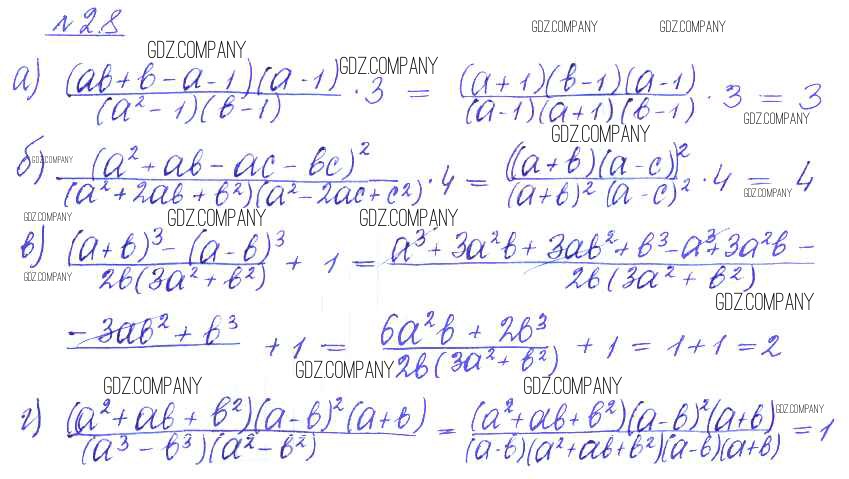 № 2.8
GDZ.COMPANY GDZ.COMPANY
GDZ.COMPANY GDZ.COMPANY
а) (ab+b-a-1)(a-1)/(a²-1)(b-1) · 3 = (a+1)(b-1)(a-1)/(a-1)(a+1)(b-1) · 3 = 3
GDZ.COMPANY GDZ.COMPANY
GDZ.COMPANY
б) (a²+ab-ac-bc)²/(a²+2ab+b²)(a²-2ac+c²) · 4 = ((a+b)(a-c))²/(a+b)²(a-c)² · 4 = 4
GDZ.COMPANY
GDZ.COMPANY GDZ.COMPANY GDZ.COMPANY
в) (a+b)³-(a-b)³/2b(3a²+b²) + 1 = a³+3a²b+3ab²+b³-a³+3a²b-/2b(3a²+b²)
GDZ.COMPANY
GDZ.COMPANY
-3ab²+b³ + 1 = 6a²b+2b³/2b(3a²+b²) + 1 = 1+1 = 2
GDZ.COMPANY
GDZ.COMPANY GDZ.COMPANY
г) (a²+ab+b²)(a-b)²(a+b)/(a³-b³)(a²-b²) = (a²+ab+b²)(a-b)²(a+b)/(a-b)(a²+ab+b²)(a-b)(a+b) = 1
GDZ.COMPANY